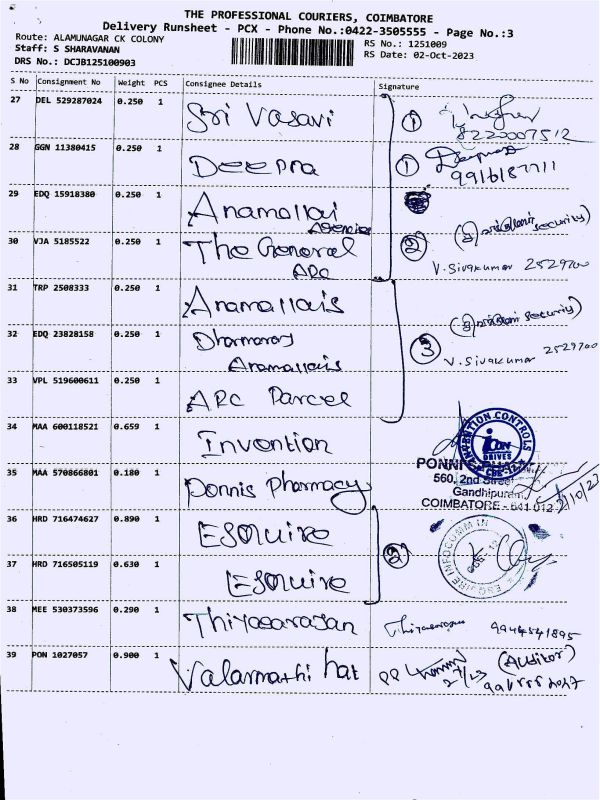 THE PROFESSIONAL COURIERS, COIMBATORE
Delivery Runsheet - PCX - Phone No.:0422-3505555 - Page No.:3
Route: ALAMUNAGAR CK COLONY
RS No.: 1251009
Staff: S SHARAVANAN
RS Date: 02-Oct-2023
DRS No.: DCJB125100903
S No Consignment No Weight PCS Consignee Details Signature
27 DEL 529287024 0.250 1 Sri Vasavi 1
8220007512
28 GGN 11380415 0.250 1 Deepna 1
9916187711
29 EDQ 15918380 0.250 1 Anamallai
Agencies
security)
30 VJA 5185522 0.250 1 The General 2
ARC V. Sivakumar 2529700
31 TRP 2508333 0.250 1 Anamallais
security)
32 EDQ 23828158 0.250 1 Dharmaraj 3
Anamallais V. Sivakumar 2529700
33 VPL 519600611 0.250 1 ARC Parcel
34 MAA 600118521 0.659 1 Invention
INVENTION CONTROLS
icon
DRIVES
CBE
35 MAA 570866801 0.180 1 Ponnis Pharmacy
PONNIS
560, 2nd Street
Gandhipuram,
COIMBATORE - 641 012
3/10/23
36 HRD 716474627 0.890 1 Esquire 2
37 HRD 716505119 0.630 1 Esquire
ESQUIRE INFOCOMM IN
38 MEE 530373596 0.290 1 Thiyagarajan Thiyagarajan 9944541895
39 PON 1027057 0.900 1 Valarmathi hat (Auditor)